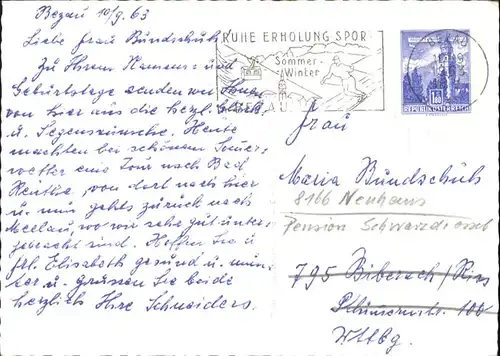 Bezau 10/9. 63
Liebe Frau Bundschuh
Zu Ihrem Namens- und
Geburtstage senden wir Ihnen
von hier aus die herzl. Glück
u. Segenswünsche. Heute
machten bei schönem
wetter eine Tour nach Bad
von dort nach hier
u. nun gehts zurück nach
Mellau, wo wir sehr gut unter-
gebracht sind. Hoffen Sie u
Frl. Elisabeth gesund u. mun-
ter u. grüssen Sie beide
herzlich Ihre Schneiders.
RUHE ERHOLUNG SPORT
Sommer-
Winter
REPUBLIK ÖSTERREICH
Frau
Maria Bundschuh
8166 Neuhaus
Pension
795 Biberach/Riss
100
Wttbg.